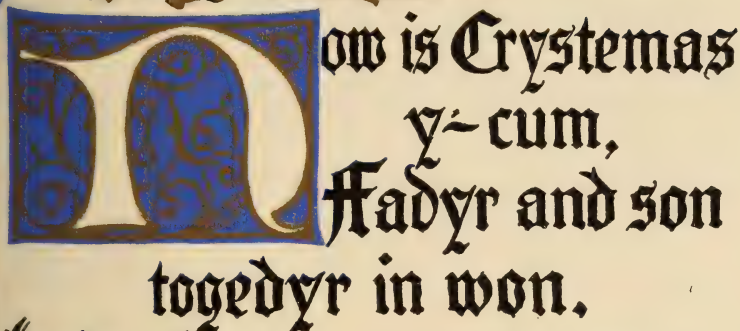 Now is Crystemas
y-cum,
ffadyr and son
togedyr in won,